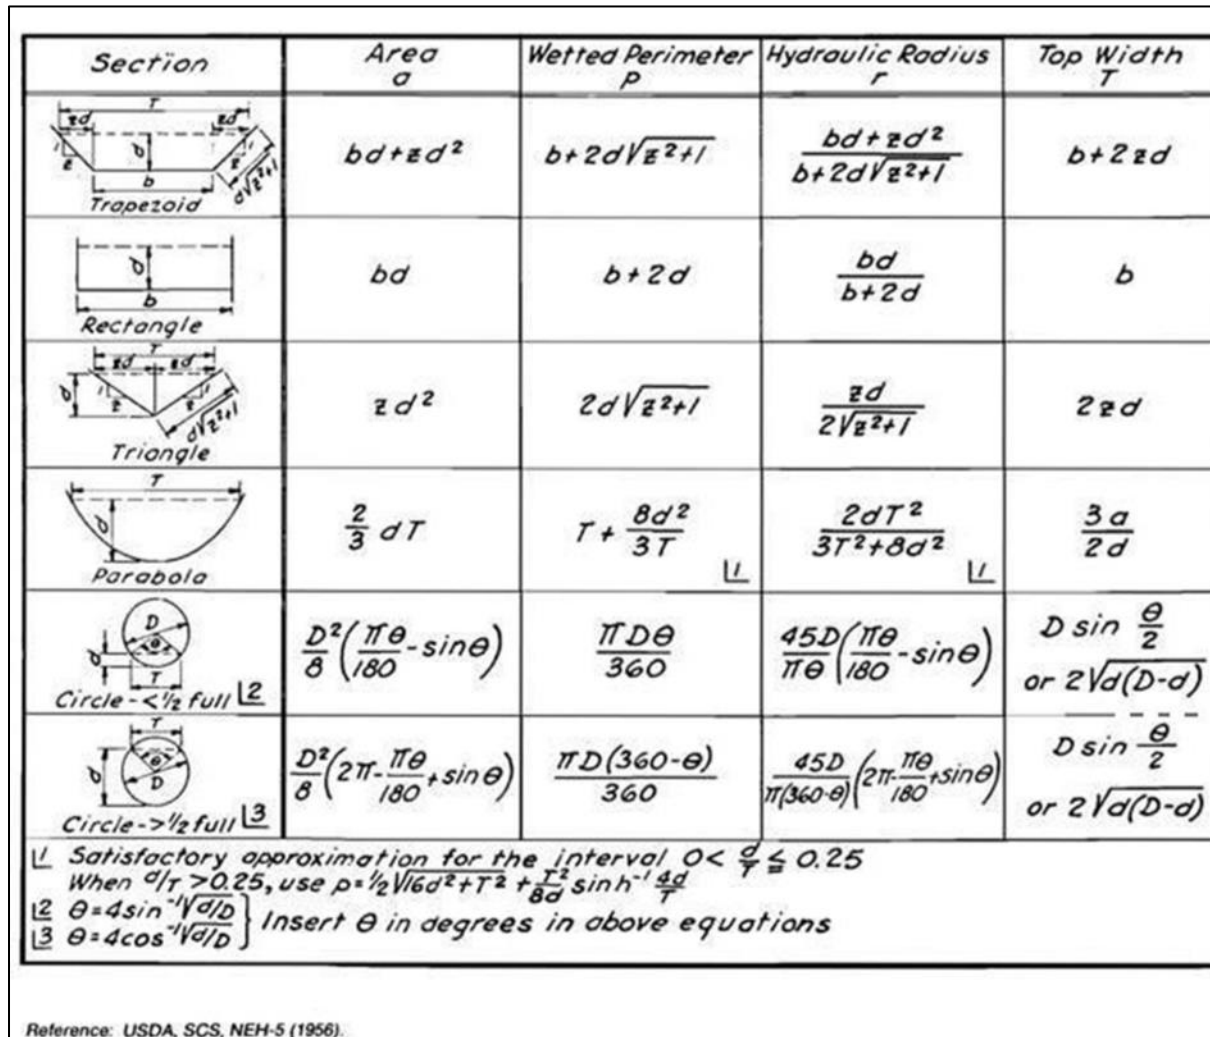 Section Area a Wetted Perimeter p Hydraulic Radius r Top Width T
T
zd zd
1 z d z 1
b d√z²+1
Trapezoid
bd+zd² b+2d√z²+1 bd+zd² / b+2d√z²+1 b+2zd
d
b
Rectangle
bd b+2d bd / b+2d b
T
zd zd
d 1 z z 1
d√z²+1
Triangle
zd² 2d√z²+1 zd / 2√z²+1 2zd
T
d
Parabola
2/3 dT T + 8d²/3T ⌊1 2dT² / 3T²+8d² ⌊1 3a / 2d
D
θ
d
T
Circle-<½ full ⌊2
D²/8 (πθ/180 - sinθ) πDθ/360 45D/πθ (πθ/180 - sinθ) D sin θ/2 or 2√d(D-d)
T
θ
d D
Circle->½ full ⌊3
D²/8 (2π - πθ/180 + sinθ) πD(360-θ)/360 45D/π(360-θ) (2π - πθ/180 + sinθ) D sin θ/2 or 2√d(D-d)
⌊1 Satisfactory approximation for the interval 0< d/T ≦ 0.25
When d/T >0.25, use p=½√16d²+T² + T²/8d sinh⁻¹ 4d/T
⌊2 θ=4sin⁻¹√d/D
⌊3 θ=4cos⁻¹√d/D } Insert θ in degrees in above equations
Reference: USDA, SCS, NEH-5 (1956).